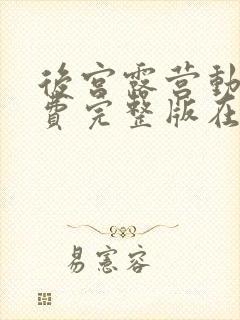 後宮露营動
費完整版在
易憲容